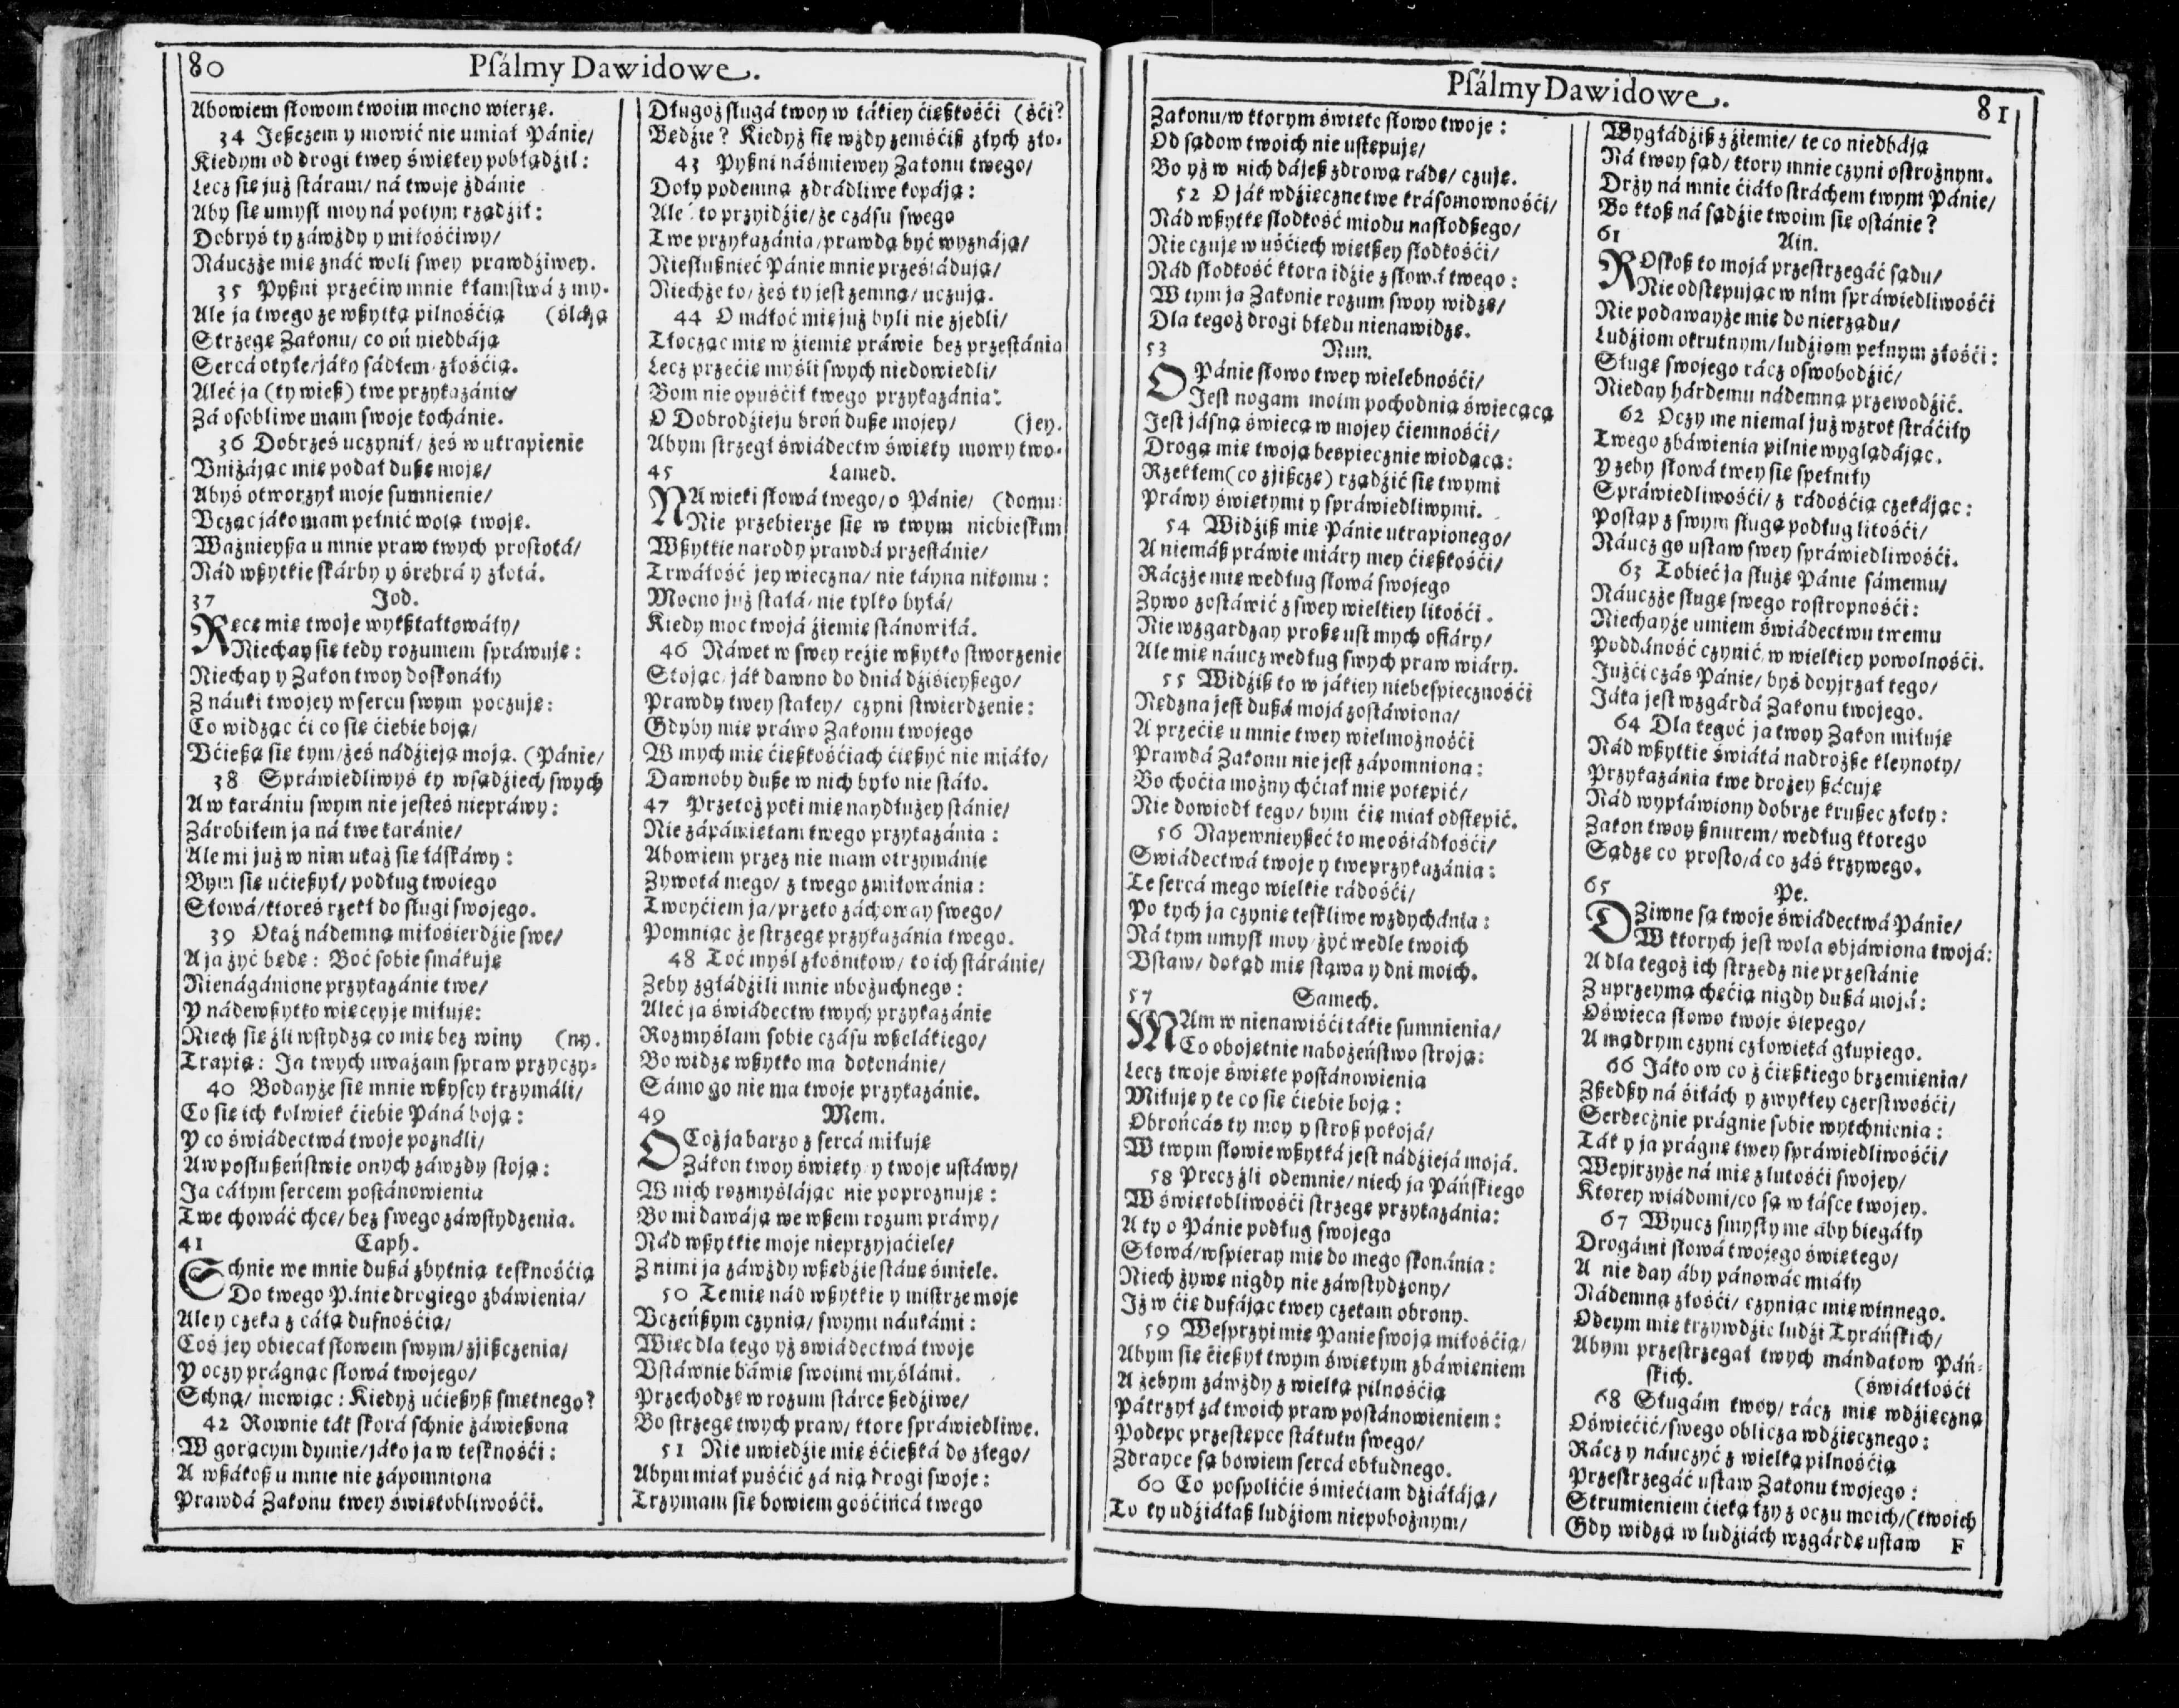 80 Psálmy Dawidowe.
Abowiem słowom twoim mocno wierzę.
34 Jeßczem y mowić nie umiał Pánie/
Kiedym od drogi twey świętey pobłądźił:
Lecz się już stáram/ ná twoje żdánie
Aby się umysł moy ná potym rządźił:
Dobryś ty záwżdy y miłośćiwy/
Náuczże mię znáć woli swey prawdźiwey.
35 Pyßni przećiw mnie kłamstwá z my-
Ale ja twego ze wßytką pilnośćią (śláją
Strzegę Zakonu/ co oń niedbáją
Sercá otyłe/ jáko sádłem/ złośćią.
Aleć ja (ty wieß) twe przykazánie/
Zá osobliwe mam swoje kochánie.
36 Dobrześ uczynił/ żeś w utrapienie
Vniżájąc mię podał dußę moję/
Abyś otworzył moje sumnienie/
Vcząc jáko mam pełnić wolą twoję.
Ważnieyßa u mnie praw twych prostotá/
Nád wßytkie skárby y śrebrá y złotá.
37 Jod.
Ręce mię twoje wykßtałtowáły/
Niechay się tedy rozumem spráwuję:
Niechay y Zakon twoy doskonáły
Z náuki twojey w sercu swym poczuję:
Co widząc ći co się ćiebie boją/
Vćießą się tym/ żeś nádźieją moją. (Pánie/
38 Spráwiedliwyś ty w sądźiech swych
A w karániu swym nie jesteś niepráwy:
Zárobiłem ja ná twe karánie/
Ale mi już w nim ukaż się łáskáwy:
Bym się ućießył/ podług twojego
Słowá/ ktoreś rzekł do sługi swojego.
39 Okaż nádemną miłośierdźie swe/
A ja żyć będę: Boć sobie smákuję
Nienágánione przykazánie twe/
Y nádewßytko więcey je miłuję:
Niech się źli wstydzą co mię bez winy (ny.
Trapią: Ja twych uważam spraw przyczy-
40 Bodayże się mnie wßyscy trzymáli/
Co się ich kolwiek ćiebie Páná boją:
Y co świádectwá twoje poználi/
A w posłußeństwie onych záwżdy stoją:
Ja cáłym sercem postánowienia
Twe chowáć chcę/ bez swego záwstydzenia.
41 Caph.
Schnie we mnie dußá zbytnią tesknośćią
Do twego Pánie drogiego zbáwienia/
Ale y czeka z cáłą dufnośćią/
Coś jey obiecał słowem swym/ zjißczenia/
Y oczy prágnąc słowá twojego/
Schną/ mowiąc: Kiedyż ućießyß smętnego?
42 Rownie ták skorá schnie záwießona
W gorącym dymie/ jáko ja w tesknośći:
A wßákoß u mnie nie zápomniona
Prawdá Zakonu twey świętobliwośći.
Długoż sługá twoy w tákiey ćięßkośći (śći?
Będźie? Kiedyż się wżdy zemśćiß złych zło-
43 Pyßni náśmiewcy Zakonu twego/
Doły podemną zdrádliwe kopáją:
Ale to przyidźie/ że czásu swego
Twe przykazánia/ prawdą być wyznáją/
Niesłußnieć Pánie mnie prześláduią/
Niechże to/ żeś ty jest zemną/ uczują.
44 O máłoć mię już byli nie zjedli/
Tłocząc mię w źiemię práwie bez przestánia
Lecz przećię myśli swych niedowiedli/
Bom nie opuśćił twego przykazánia:
O Dobrodźieju broń duße mojey/ (jey.
Abym strzegł świádectw święty mowy two-
45 Lamed.
NA wieki słowá twego/ o Pánie/ (domu:
Nie przebierze się w twym niebieskim
Wßytkie narody prawdá przestánie/
Trwáłość jey wieczna/ nie táyna nikomu:
Mocno już stałá/ nie tylko byłá/
Kiedy moc twojá źiemię stánowiłá.
46 Náwet w swey reźie wßytko stworzenie
Stojąc/ ják dawno do dniá dźiśieyßego/
Prawdy twey stałey/ czyni stwierdzenie:
Gdyby mię práwo Zakonu twojego
W mych mię ćięßkośćiach ćießyć nie miáło/
Dawnoby duße w nich było nie stáło.
47 Przetoż poki mię naydłużey stánie/
Nie zápámiętam twego przykazánia:
Abowiem przez nie mam otrzymánie
Zywotá mego/ z twego zmiłowánia:
Twoyćiem ja/ przeto záchoway swego/
Pomniąc że strzegę przykazánia twego.
48 Toć myśl złośnikow/ to ich stáránie/
Zeby zgłádźili mnie ubożuchnego:
Aleć ja świádectw twych przykazánie
Rozmyślam sobie czásu wßelákiego/
Bo widzę wßytko ma dokonánie/
Sámo go nie ma twoje przykazánie.
49 Mem.
O Coż ja barzo z sercá miłuję
Zákon twoy święty y twoje ustáwy/
W nich rozmyślájąc nie poproznuję:
Bo mi dawáją we wßem rozum práwy/
Nád wßytkie moje nieprzyjaćiele/
Z nimi ja záwżdy wßędźie stánę śmiele.
50 Te mię nád wßytkie y mistrze moje
Vczeńßym czynią/ swymi náukámi:
Więc dla tego yż świádectwá twoje
Vstáwnie báwię swoimi myślámi.
Przechodzę w rozum stárce ßedźiwe/
Bo strzegę twych praw/ ktore spráwiedliwe.
51 Nie uwiedźie mię śćießká do złego/
Abym miał puśćić zá nią drogi swoje:
Trzymam się bowiem gośćińcá twego
Psálmy Dawidowe. 81
Zakonu/ w ktorym święte słowo twoje:
Od sądow twoich nie ustępuję/
Bo yż w nich dájeß zdrową rádę/ czuję.
52 O ják wdźięczne twe krásomownośći/
Nád wßytkę słodkość miodu nasłodßego/
Nie czuję w uśćiech więtßey słodkośći/
Nád słodkość ktora idźie z słowá twego:
W tym ja Zakonie rozum swoy widzę/
Dla tegoż drogi błędu nienawidzę.
53 Nun.
O Pánie słowo twey wielebnośći/
Jest nogam moim pochodnią świecącą
Jest jásną świecą w mojey ćiemnośći/
Drogą mię twoją bespiecznie wiodącą:
Rzekłem (co zjißczę) rządźić się twymi
Práwy świętymi y spráwiedliwymi.
54 Widźiß mię Pánie utrapionego/
A niemáß práwie miáry mey ćięßkośći/
Ráczże mię według słowá swojego
Zywo zostáwić z swey wielkiey litośći.
Nie wzgardzay proßę ust mych ofiáry/
Ale mię náucz według swych praw wiáry.
55 Widźiß to w jákiey niebespiecznośći
Nędzna jest dußá mojá zostáwiona/
A przećię u mnie twey wielmożnośći
Prawdá Zakonu nie jest zápomniona:
Bo choćia możny chćiał mię potępić/
Nie dowiodł tego/ bym ćię miał odstępić.
56 Napewnieyßeć to me ośiádłośći/
Swiádectwá twoje y twe przykazánia:
Te sercá mego wielkie rádośći/
Po tych ja czynię teskliwe wzdychánia:
Ná tym umysł moy/ żyć wedle twoich
Vstaw/ dokąd mię stawa y dni moich.
57 Samech.
MAm w nienawiśći tákie sumnienia/
Co obojętnie nabożeństwo stroją:
Lecz twoje święte postánowienia
Miłuję y te co się ćiebie boją:
Obrońcáś ty moy y stroß pokojá/
W twym słowie wßytká jest nádźiejá mojá.
58 Precz źli odemnie/ niech ja Páńskiego
W świętobliwośći strzegę przykazánia:
A ty o Pánie podług swojego
Słowá/ wspieray mię do mego skonánia:
Niech żywę nigdy nie záwstydzony/
Iż w ćię dufájąc twey czekam obrony.
59 Wesprzyi mię Panie swoją miłośćią/
Abym się ćießył twym świętym zbáwieniem
A żebym záwżdy z wielką pilnośćią
Pátrzył zá twoich praw postánowieniem:
Podepc przestępce státutu swego/
Zdrayce są bowiem sercá obłudnego.
60 Co pospolićie śmiećiam dźiáłáją/
To ty udźiáłaß ludźiom niepobożnym/
Wygłádźiß z źiemie/ te co niedbáją
Ná twoy sąd/ ktory mnie czyni ostrożnym.
Drży ná mnie ćiáło stráchem twym Pánie/
Bo ktoß ná sądźie twoim się ostánie?
61 Ain.
ROskoß to mojá przestrzegáć sądu/
Nie odstępując w nim spráwiedliwośći
Nie podawayże mię do nierządu/
Ludźiom okrutnym/ ludźiom pełnym złośći:
Sługę swojego rácz oswobodźić/
Nieday hárdemu nádemną przewodźić.
62 Oczy me niemal już wzrok stráćiły
Twego zbáwienia pilnie wyglądájąc.
Y żeby słowá twey się spełniły
Spráwiedliwośći/ z rádośćią czekájąc:
Postąp z swym sługą podług litośći/
Náucz go ustaw swey spráwiedliwośći.
63 Tobieć ja służę Pánie sámemu/
Náuczże sługę swego rostropnośći:
Niechayże umiem świádectwu twemu
Poddáność czynić/ w wielkiey powolnośći.
Jużći czás Pánie/ byś doyjrzał tego/
Jáka jest wzgárdá Zakonu twojego.
64 Dla tegoć ja twoy Zakon miłuję
Nád wßytkie świátá nadroższe kleynoty/
Przykazánia twe drożey ßácuję
Nád wypławiony dobrze krußec złoty:
Zakon twoy ßnurem/ według ktorego
Sądzę co prosto/ á co záś krzywego.
65 Pe.
DZiwne są twoje świádectwá Pánie/
W ktorych jest wola objáwiona twojá:
A dla tegoż ich strzedz nie przestánie
Z uprzeymą chęćią nigdy dußá mojá:
Oświeca słowo twoje ślepego/
A mądrym czyni człowieká głupiego.
66 Jáko ow co z ćięßkiego brzemienia/
Zßedßy ná śiłách y zwykłey czerstwośći/
Serdecznie prágnie sobie wytchnienia:
Ták y ja prágnę twey spráwiedliwośći/
Weyjrzyże ná mię z lutośći swojey/
Ktorey wiádomi/ co są w łásce twojey.
67 Wyucz smysły me aby biegáły
Drogámi słowá twojego świętego/
A nie day áby pánowáć miáły
Nádemną złośći/ czyniąc mię winnego.
Odeym mię krzywdźie ludźi Tyráńskich/
Abym przestrzegał twych mándatow Páń-
skich. (świátłośći
68 Sługám twoy/ rácz mię wdźięczną
Oświećić/ swego oblicza wdźięcznego:
Rácz y náuczyć z wielką pilnośćią
Przestrzegáć ustaw Zakonu twojego:
Strumieniem ćieką łzy z oczu moich/ (twoich
Gdy widzą w ludźiách wzgárdę ustaw F